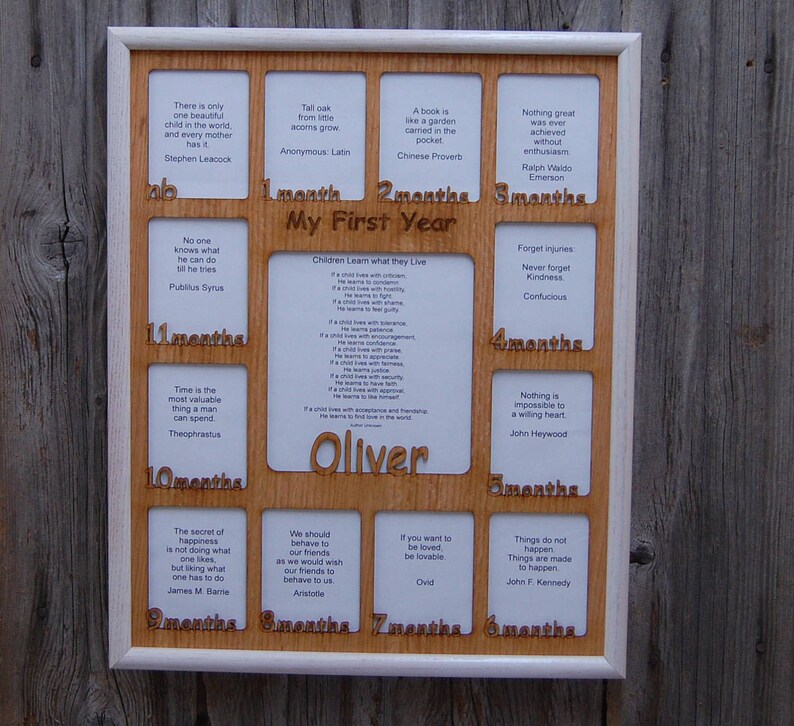 There is only
one beautiful
child in the world,
and every mother
has it.
Stephen Leacock
nb
Tall oak
from little
acorns grow.
Anonymous: Latin
1month
A book is
like a garden
carried in the
pocket.
Chinese Proverb
2months
Nothing great
was ever
achieved
without
enthusiasm.
Ralph Waldo
Emerson
3months
My First Year
No one
knows what
he can do
till he tries
Publilus Syrus
11months
Children Learn what they Live
If a child lives with criticism,
He learns to condemn.
If a child lives with hostility,
He learns to fight.
If a child lives with shame,
He learns to feel guilty.
If a child lives with tolerance,
He learns patience.
If a child lives with encouragement,
He learns confidence.
If a child lives with praise,
He learns to appreciate.
If a child lives with fairness,
He learns justice.
If a child lives with security,
He learns to have faith.
If a child lives with approval,
He learns to like himself.
If a child lives with acceptance and friendship,
He learns to find love in the world.
Author Unknown
Oliver
Forget injuries:
Never forget
Kindness.
Confucious
4months
Time is the
most valuable
thing a man
can spend.
Theophrastus
10months
Nothing is
impossible to
a willing heart.
John Heywood
5months
The secret of
happiness
is not doing what
one likes,
but liking what
one has to do
James M. Barrie
9months
We should
behave to
our friends
as we would wish
our friends to
behave to us.
Aristotle
8months
If you want to
be loved,
be lovable.
Ovid
7months
Things do not
happen.
Things are made
to happen.
John F. Kennedy
6months